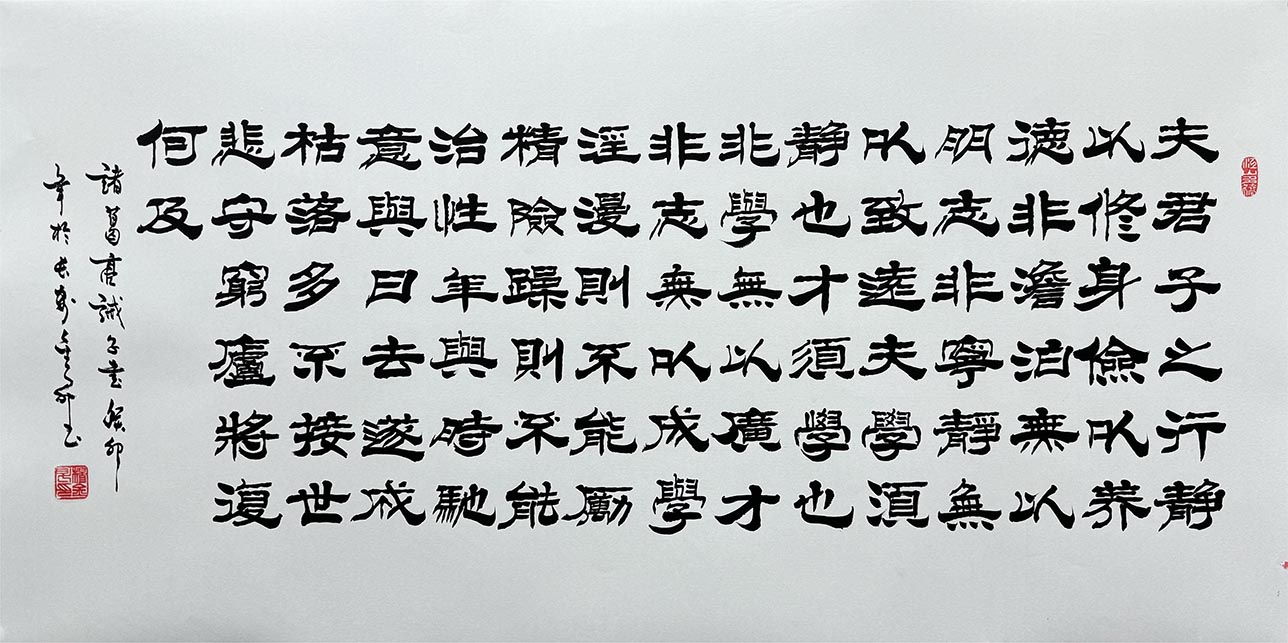 夫君子之行静
以修身儉以养
德非澹泊無以
明志非寧静無
以致遠夫學須
静也才須學也
非學無以廣才
非志無以成學
淫漫則不能勵
精險躁則不能
治性年與時馳
意與日去遂成
枯落多不接世
悲守窮廬將復
何及
諸葛亮誡子書癸卯
年於長安